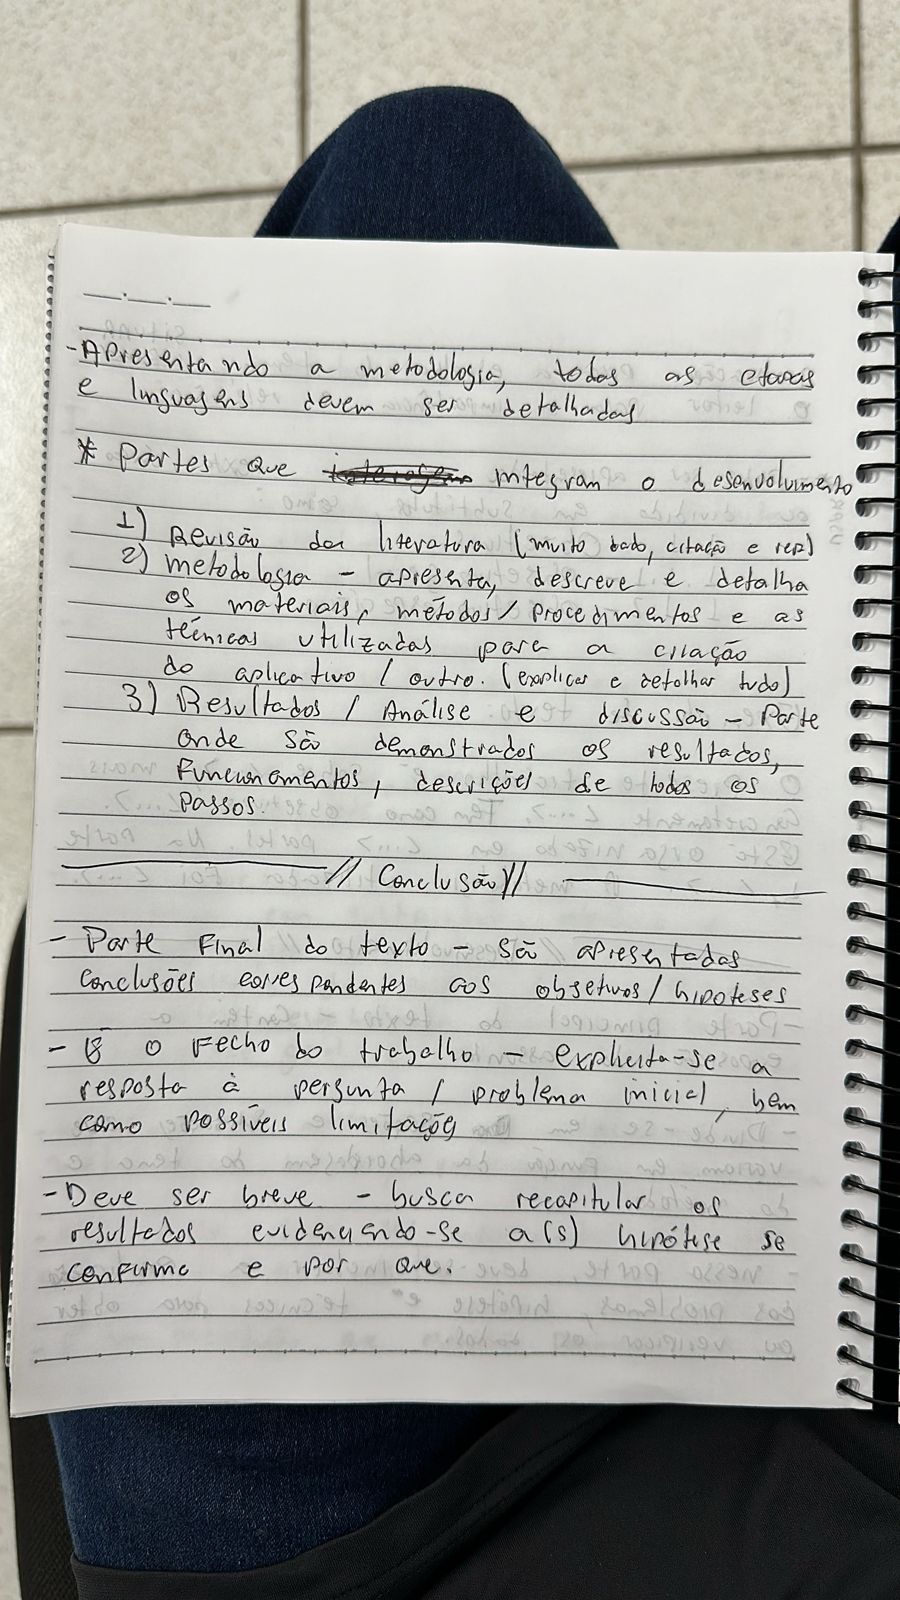 - Apresentando a metodologia, todas as etapas
e linguagens devem ser detalhadas
* Partes que integram o desenvolvimento
1) Revisão da literatura (muito dado, citação e rep)
2) metodologia - apresenta, descreve e detalha
os materiais, métodos / procedimentos e as
técnicas utilizadas para a criação
do aplicativo / outro. (explicar e detalhar tudo)
3) Resultados / Análise e discussão - Parte
onde são demonstrados os resultados,
funcionamentos, descrições de todos os
passos.
// Conclusão //
- Parte Final do texto - são apresentadas
conclusões correspondentes aos objetivos / hipóteses
- É o Fecho do trabalho - explicita-se a
resposta à pergunta / problema inicial, bem
como possíveis limitações
- Deve ser breve - busca recapitular os
resultados evidenciando-se a(s) hipótese se
confirma e por que.